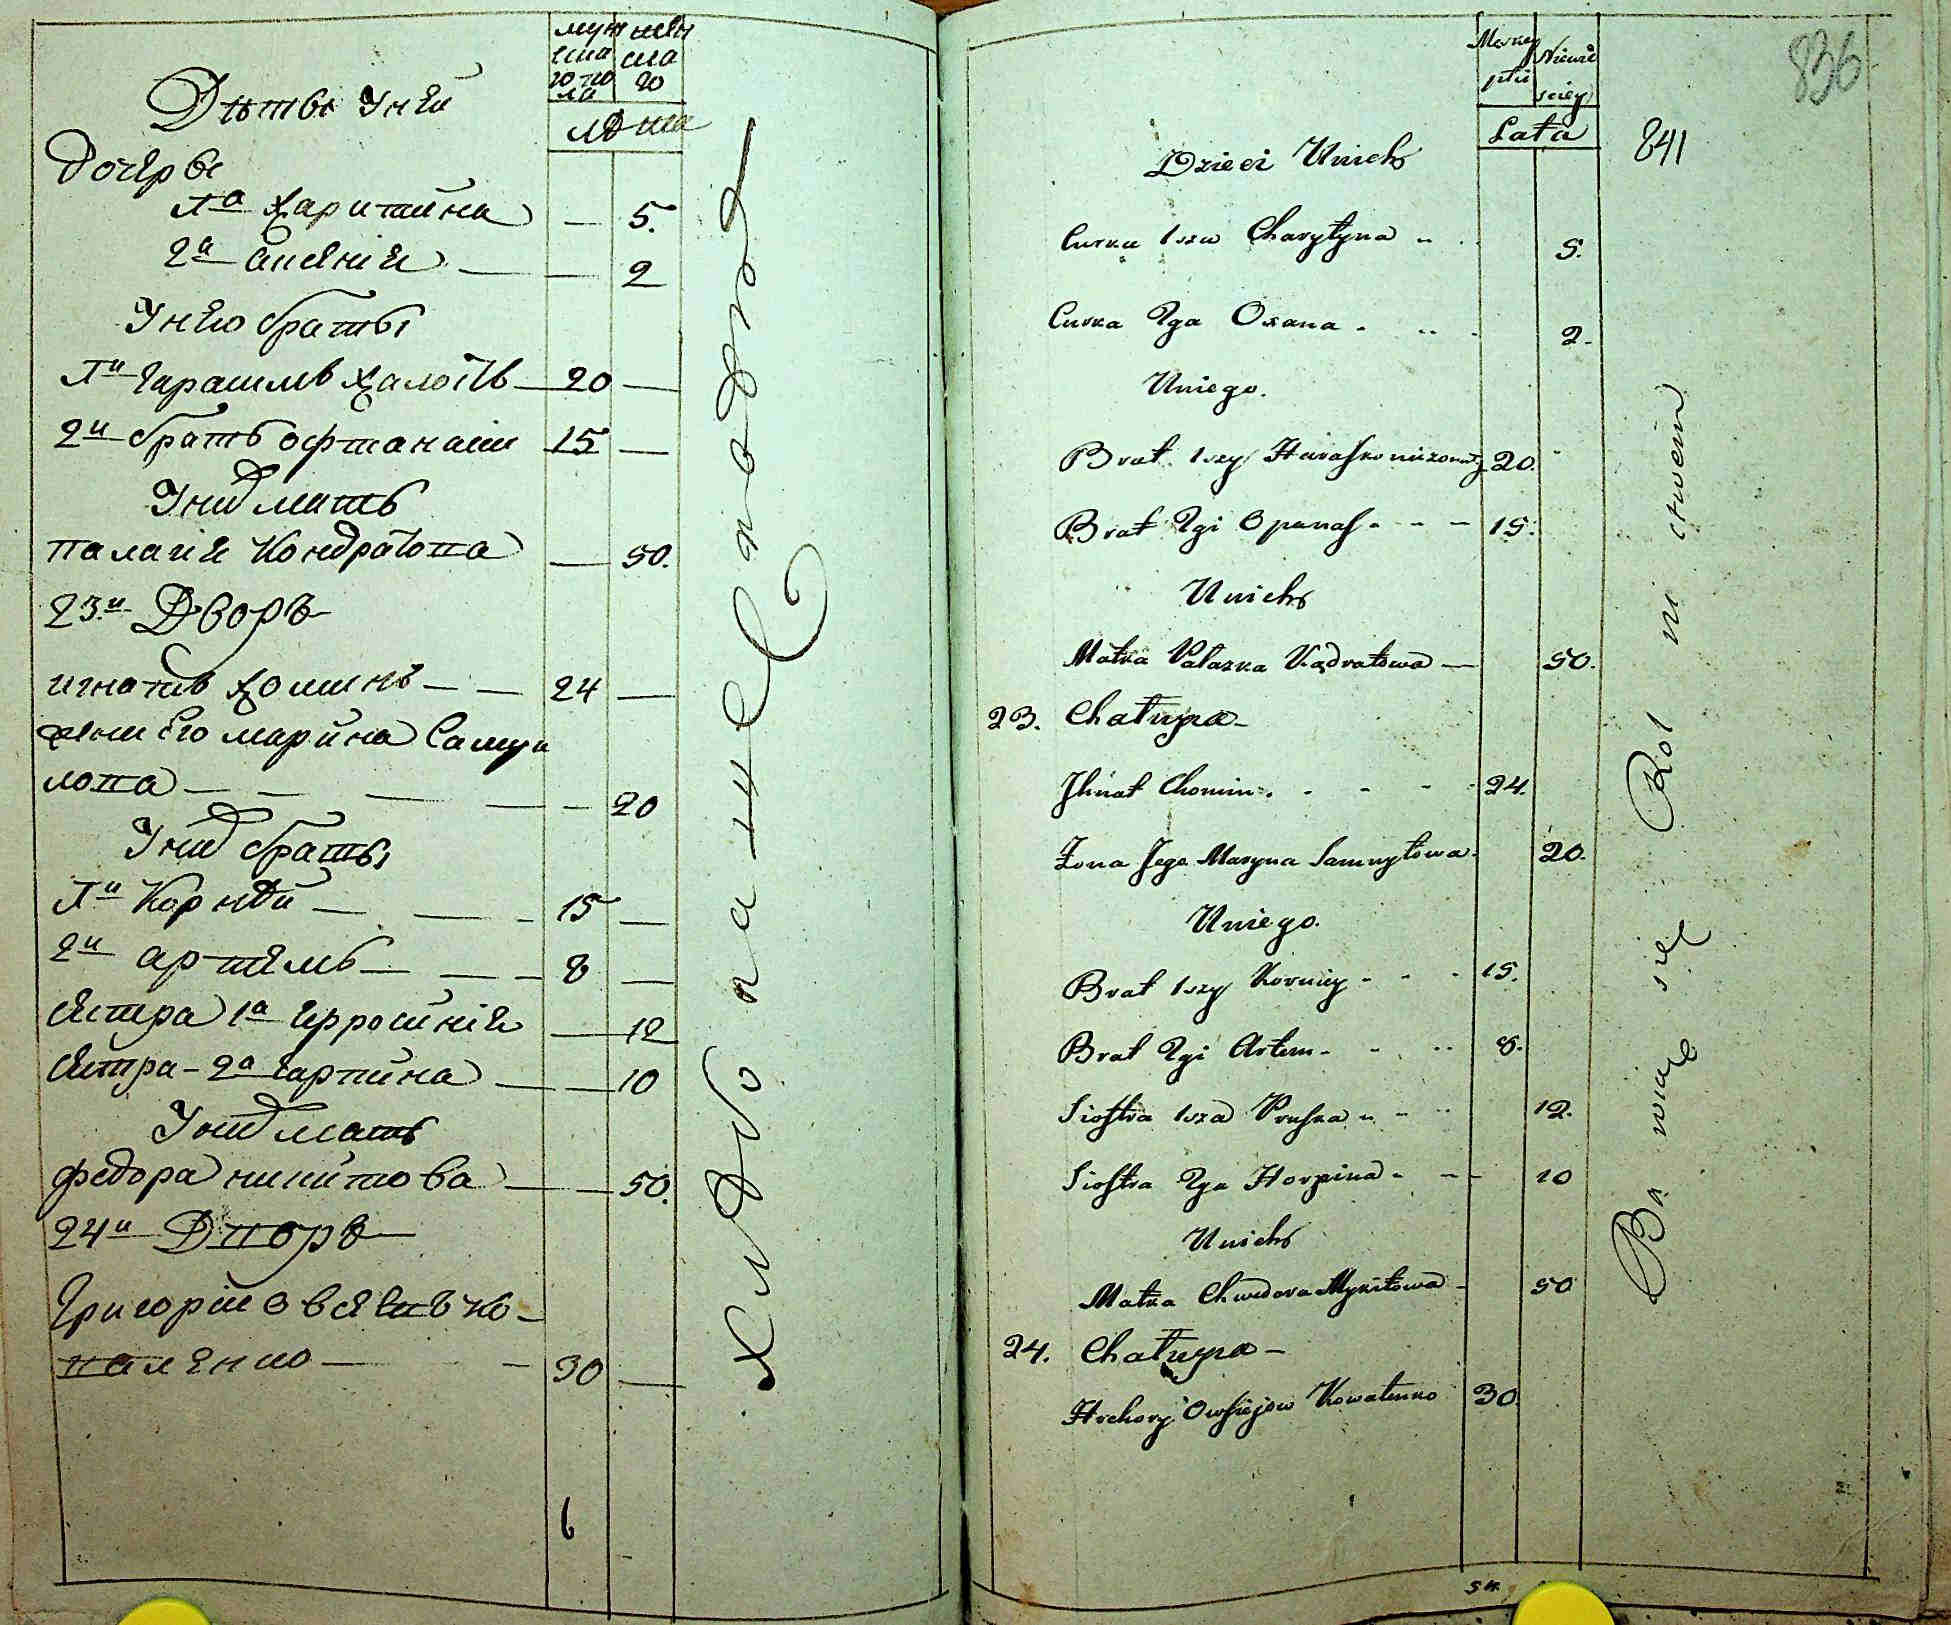 муж
ска
го по
ла
жен
ска
го
лѣта
Дѣты у ней
дочеры
1а Харитина — 5.
2а Ксения — — 2
У него браты
1й Гарасимъ — 20 —
2й братъ Офтанаси 15 —
У них мать
Палагия Кондратова — 50.
23й Дворъ
Игнатъ Хоминъ — — 24 —
жена его Марина Самуи
лова — — — — — 20
У них браты
1й Корнѣй — — — 15 —
2й Артемъ — — — 8 —
Сестра 1а — 12
Сестра – 2а Гарпина — — 10
У них мать
Федора Никитова — — 50.
24й Дворъ
Григорий Овсеевъ Ко-
валенко — — 30 —
6
Хлѣбопашествомъ
Męzkiey
płci
Niewie
sciey
Lata
836
841
Dzieci Unich
Curka 1sza Charytyna 5.
Curka 2ga Oxana 2.
Uniego.
Brat 1szy Harasko 20.
Brat 2gi Opanas 15.
Unich
Matka Pałazka Kądratowa — 50.
23. Chałupa –
Jhnat Chomin 24.
Żona Jego Maryna Samuyłowa 20.
Uniego.
Brat 1szy Korniey 15.
Brat 2gi Artem 8.
Siostra 1sza Pruska 12.
Siostra 2ga Horpina 10
Unich
Matka Chwedora Mykitowa 50
24. Chałupa –
Hrehory Owsiejow Kowalenko 30.
Ba wią się Rol ni ctwem